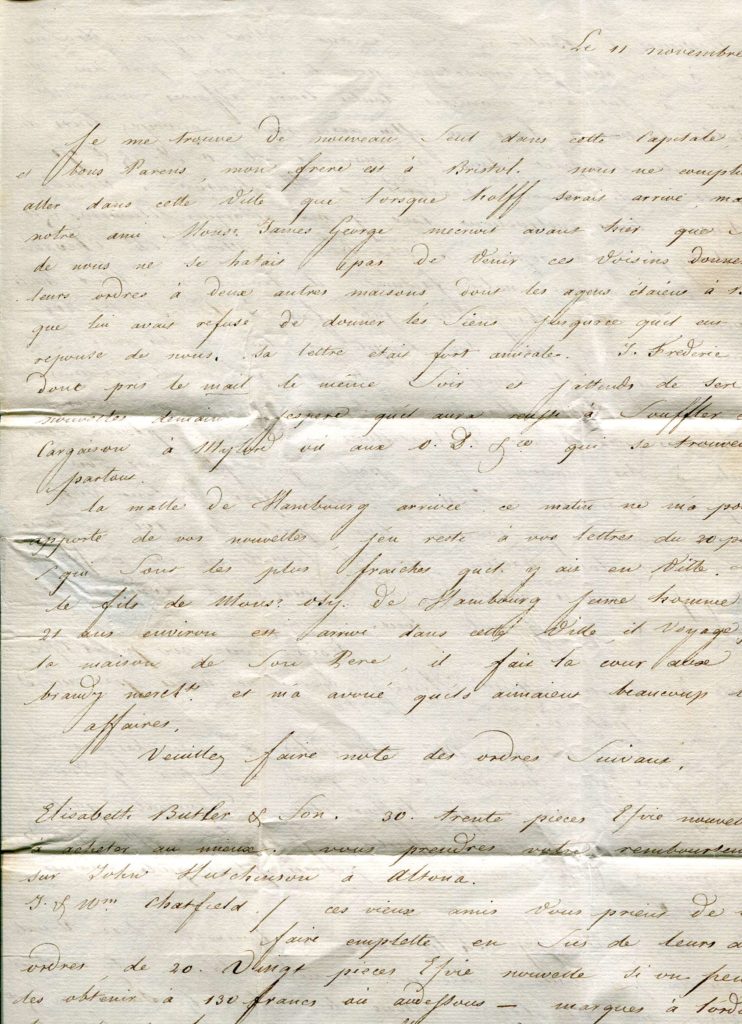 Le 11 novembre
Je me trouve de nouveau seul dans cette Capitale
et bons Parens, mon frere est à Bristol. nous ne comptio
aller dans cette Ville que lorsque holff serais arrivé, ma
notre ami Monsr. James George mecrivit avant hier que
de nous ne se hatais pas de venir ces Voisins donne
leurs ordres à deux autres maisons dont les agens étaiens à
que lui avais refusé de donner les Siens jusquace quil eut
reponse de nous. sa lettre etais fort amicale. J. Frederic
dont pris le mail le même Soir et j'attends de ses
nouvelles demain, j'espere quil aura reussi à Souffler
Cargaison à Mylord où aux O. D. & Co qui se trouve
partout.
la malle de Hambourg arrivée ce matin ne m'a po
apporté de vos nouvelles, jen reste à vos lettres du 20
qui Sont les plus fraiches quil y ais en Ville.
le fils de Monsr. Osy. de Hambourg jeune homme
21 ans environ est arrivé dans cette Ville, il voyage
la maison de Son Pere, il fait la cour aux
brandy merchts. et m'a avoué quils aimaiens beaucoup
affaires.
Veuillez faire note des ordres Suivans.
Elisabeth Butler & Son. 30. trente pieces Esprie nouvel
à acheter au mieux. vous prendres votre rembourse
sur John Hutchinson à Altona.
J. & Wm Chatfield / ces vieux amis Vous prient de
faire emplette en Sus de leurs
ordres, de 20. Vingt pieces Esprie nouvelle si on peu
des obtenir à 130 francs où audessous — marques à l'ord